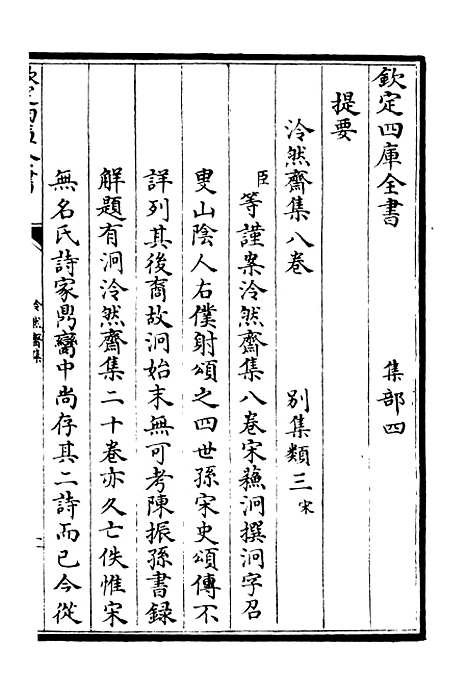 欽定四庫全書　　　集部四
提要
泠然齋集八卷　　　別集類三宋
臣等謹案泠然齋集八卷宋蘓泂撰泂字召
叟山陰人右僕射頌之四世孫宋史頌傳不
詳列其後裔故泂始末無可考陳振孫書錄
解題有泂泠然齋集二十卷亦久亡佚惟宋
無名氏詩家鼎臠中尚存其二詩而已今從
欽定四庫全書
泠然齋集